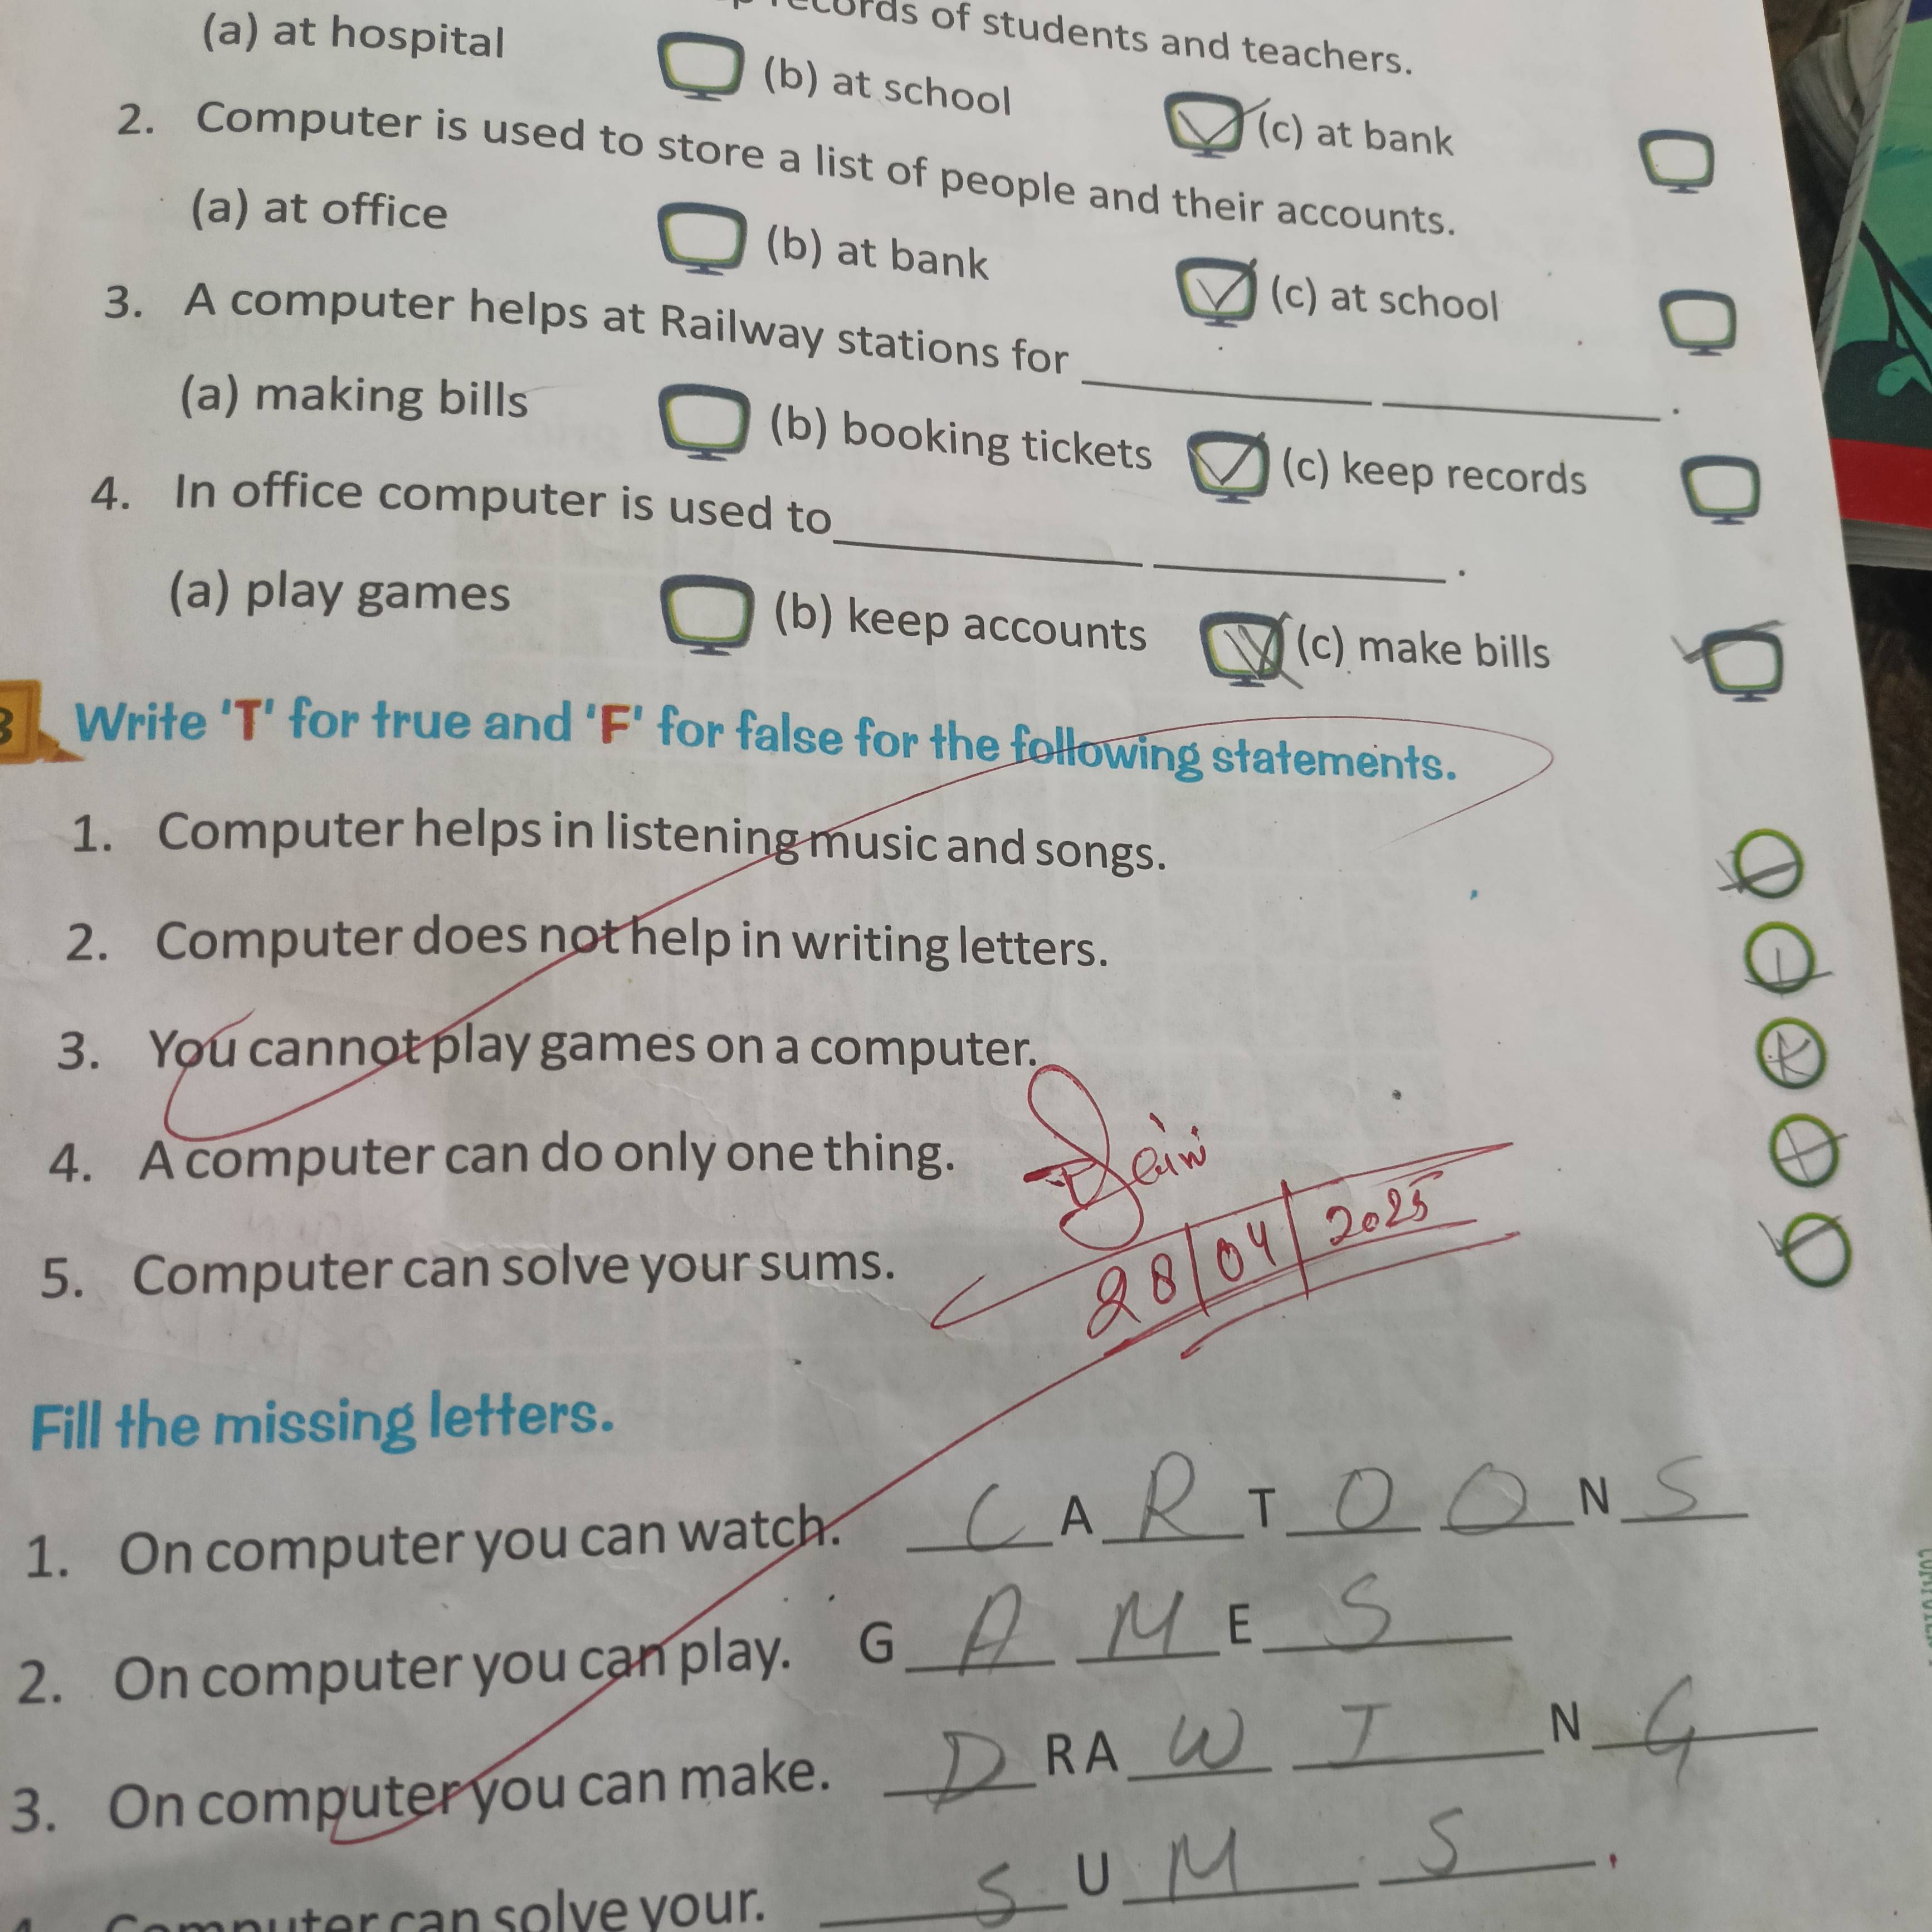 records of students and teachers.
(a) at hospital (b) at school (c) at bank
2. Computer is used to store a list of people and their accounts.
(a) at office (b) at bank (c) at school
3. A computer helps at Railway stations for ____________ ____________.
(a) making bills (b) booking tickets (c) keep records
4. In office computer is used to____________ ____________.
(a) play games (b) keep accounts (c) make bills
Write 'T' for true and 'F' for false for the following statements.
1. Computer helps in listening music and songs.
2. Computer does not help in writing letters.
3. You cannot play games on a computer.
4. A computer can do only one thing.
5. Computer can solve your sums.
28/04/2025
Fill the missing letters.
1. On computer you can watch. C A R T O O N S
2. On computer you can play. G A M E S
3. On computer you can make. D RA W I N G
Computer can solve your. S U M S.